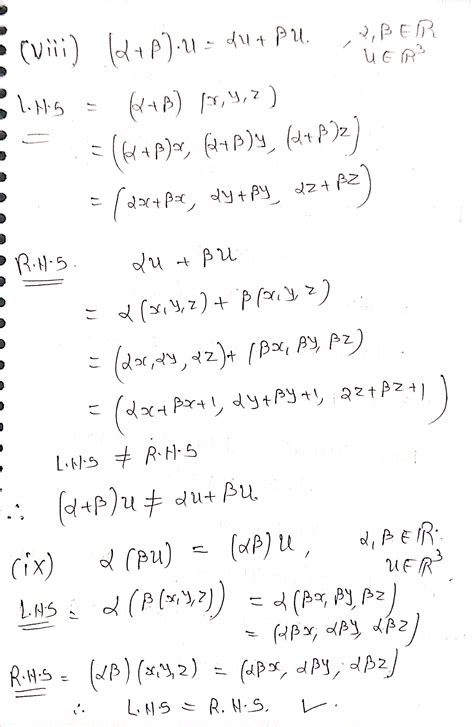 (viii) (α+β)·u = αu + βu. , α, β ∈ ℝ
u ∈ ℝ³
L.H.S = (α+β) (x, y, z)
= ((α+β)x, (α+β)y, (α+β)z)
= (αx+βx, αy+βy, αz+βz)
R.H.S. αu + βu
= α(x, y, z) + β(x, y, z)
= (αx, αy, αz) + (βx, βy, βz)
= (αx+βx+1, αy+βy+1, αz+βz+1)
L.H.S ≠ R.H.S
∴ (α+β)u ≠ αu + βu
(ix) α(βu) = (αβ)u, α, β ∈ ℝ.
u ∈ ℝ³
L.H.S = α(β(x, y, z)) = α(βx, βy, βz)
= (αβx, αβy, αβz)
R.H.S = (αβ)(x, y, z) = (αβx, αβy, αβz)
∴ L.H.S = R.H.S. ✓.